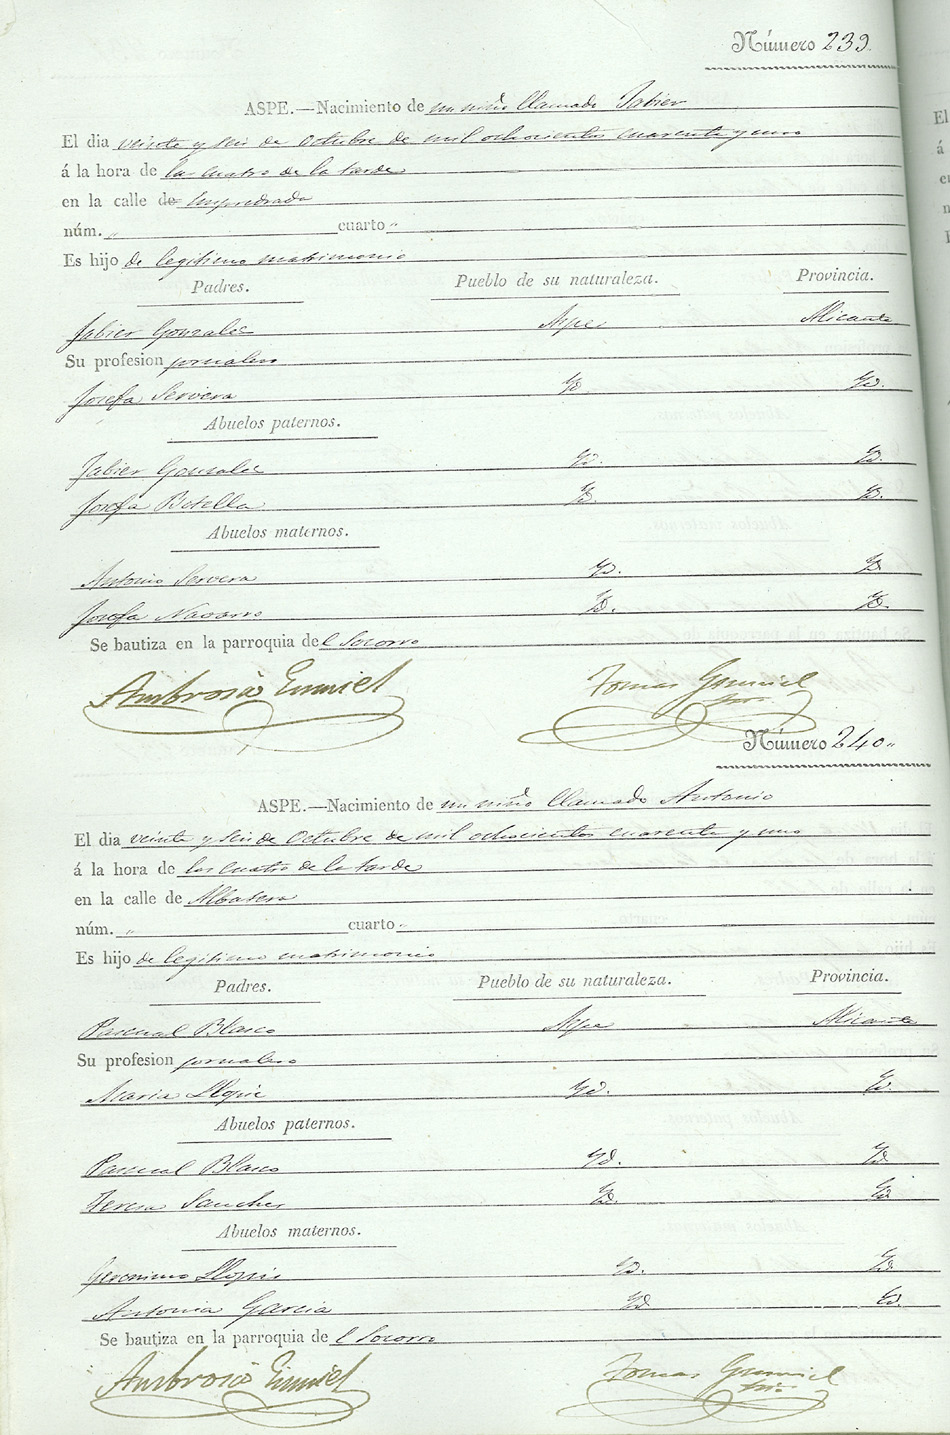 Número 239.
ASPE.—Nacimiento de un niño llamado Jabier
El dia veinte y seis de Octubre de mil ochocientos cuarenta y uno
á la hora de las cuatro de la tarde
en la calle de Empedrada
núm. „ cuarto „
Es hijo de legitimo matrimonio
Padres. Pueblo de su naturaleza. Provincia.
Jabier Gonzalez Aspe Alicante
Su profesion jornalero
Josefa Servera Yd. Yd.
Abuelos paternos.
Jabier Gonzalez Yd. Yd.
Josefa Botella Yd. Yd.
Abuelos maternos.
Antonio Servera Yd. Yd.
Josefa Navarro Yd. Yd.
Se bautiza en la parroquia del Socorro
Ambrosio Tomas
Número 240.
ASPE.—Nacimiento de un niño llamado Antonio
El dia veinte y seis de Octubre de mil ochocientos cuarenta y uno
á la hora de las cuatro de la tarde
en la calle de
núm. „ cuarto „
Es hijo de legitimo matrimonio
Padres. Pueblo de su naturaleza. Provincia.
Pascual Blasco Aspe Alicante
Su profesion jornalero
Maria Llopis Yd. Yd.
Abuelos paternos.
Pascual Blasco Yd. Yd.
Teresa Sanchez Yd. Yd.
Abuelos maternos.
Geronimo Llopis Yd. Yd.
Antonia Garcia Yd. Yd.
Se bautiza en la parroquia del Socorro
Ambrosio Tomas